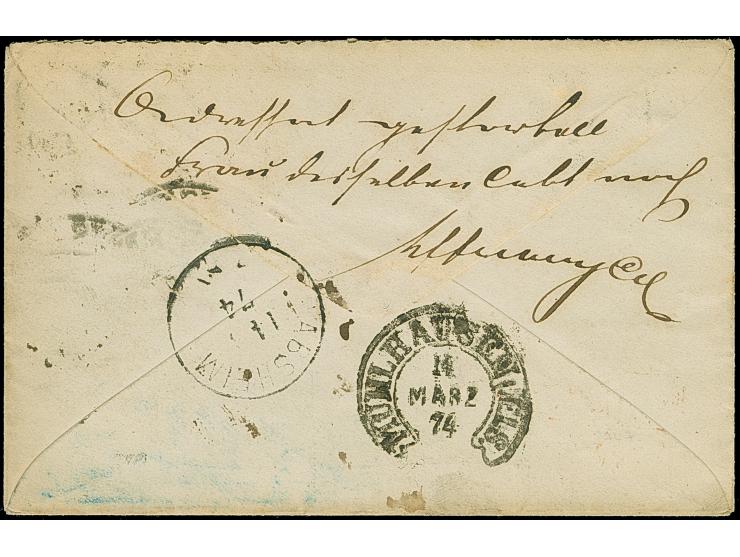 Adressat gestorben
Frau desselben lebt noch
HABSHEIM
11
74
MÜHLHAUSEN I/ELS
14
MÄRZ
74